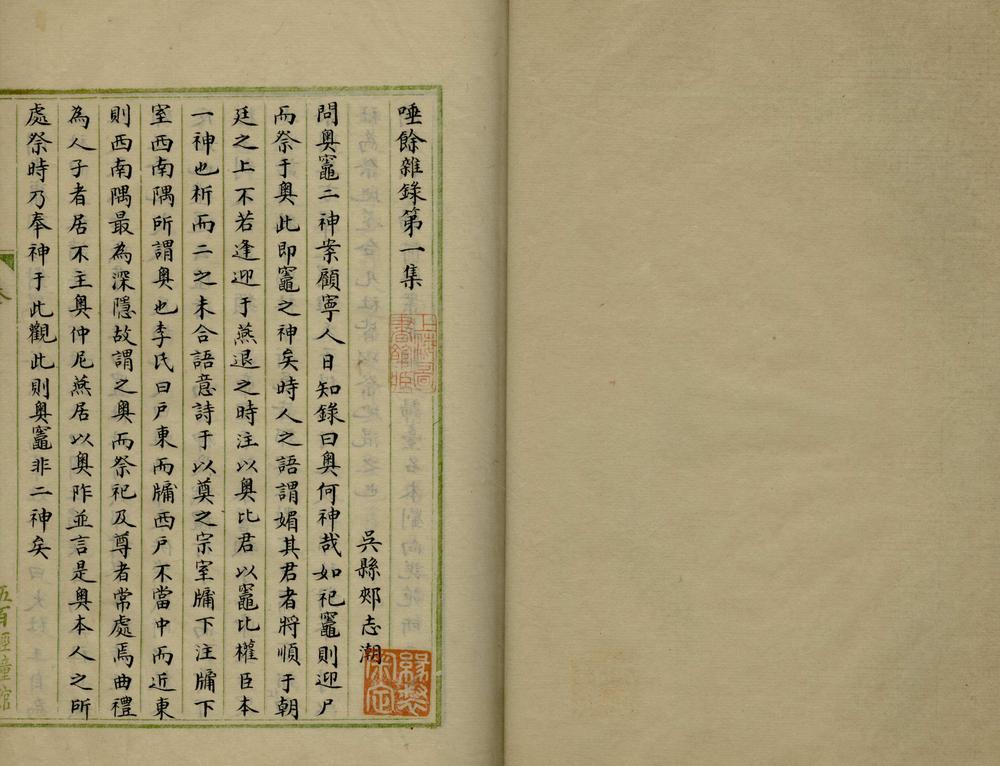 唾餘雜錄第一集
吳縣郟志潮
問奧竈二神案顧寧人日知錄曰奧何神哉如祀竈則迎尸
而祭于奧此即竈之神矣時人之語謂媚其君者將順于朝
廷之上不若逢迎于燕退之時注以奧比君以竈比權臣本
一神也析而二之未合語意詩于以奠之宗室牖下注牖下
室西南隅所謂奧也李氏曰戶東而牖西戶不當中而近東
則西南隅最為深隱故謂之奧而祭祀及尊者常處焉曲禮
為人子者居不主奧仲尼燕居以奧阼並言是奧本人之所
處祭時乃奉神于此觀此則奧竈非二神矣
五百經幢館